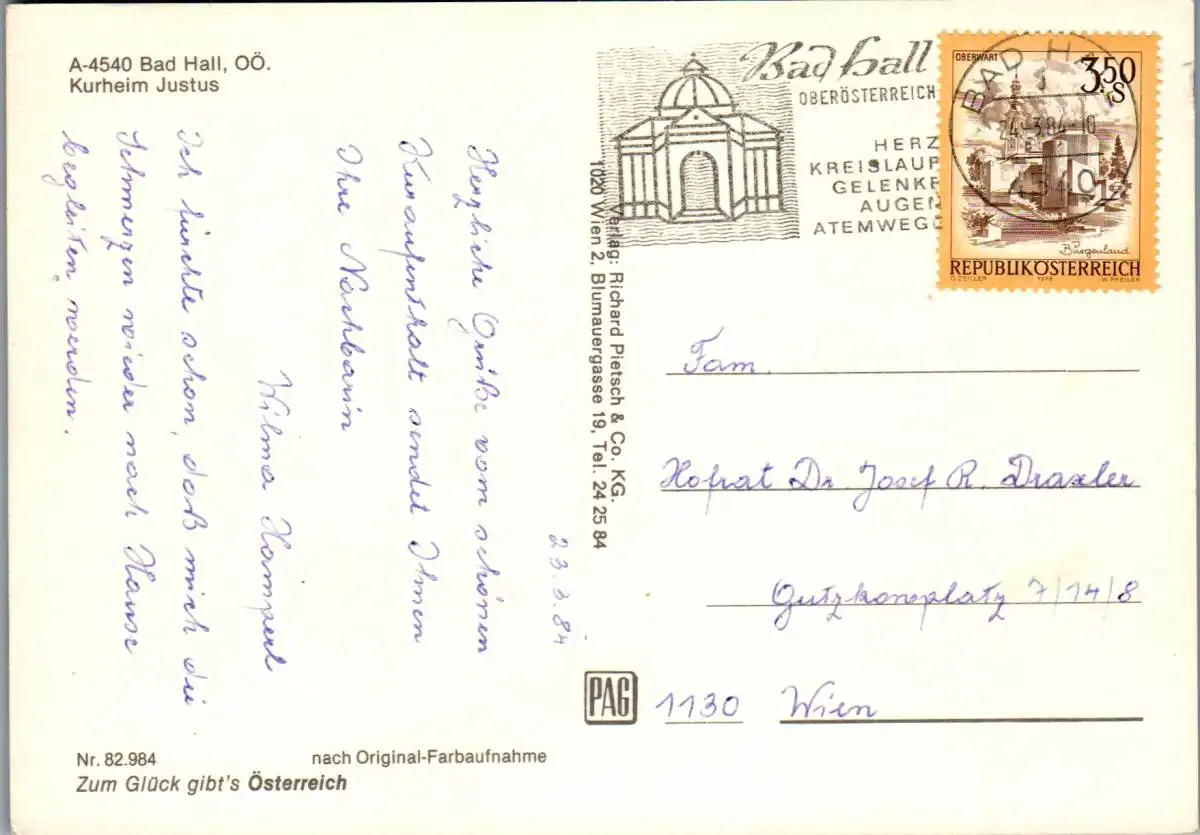 A-4540 Bad Hall, OÖ.
Kurheim Justus
23.3.84
Herzliche Grüße vom schönen
Kuraufenthalt sendet Ihnen
Ihre Nachbarin
Wilma Hamperl
Ich fürchte schon, daß mich die
Schmerzen wieder nach Hause
begleiten werden.
Nr. 82.984
nach Original-Farbaufnahme
Zum Glück gibt's Österreich
Verlag: Richard Pietsch & Co. KG.
1020 Wien 2, Blumauergasse 19, Tel. 24 25 84
PAG
Bad Hall
OBERÖSTERREICH
HERZ
KREISLAUF
GELENKE
AUGEN
ATEMWEGE
BAD HALL
24.-3.84-10
4540
OBERWART
3.50
S
Burgenland
REPUBLIK ÖSTERREICH
O. ZEILLER
W. PFEILER
Fam.
Hofrat Dr. Josef R. Draxler
Gutzkowplatz 7/14/8
1130 Wien